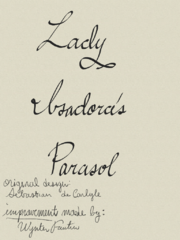 Lady
Isadora's
Parasol
original design:
Sebastian de Carlyle
improvements made by:
Wynter